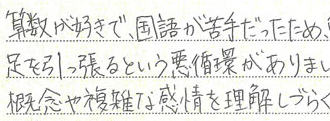 算数が好きで、国語が苦手だったため、
足を引っ張るという悪循環がありまし
概念や複雑な感情を理解しづらく